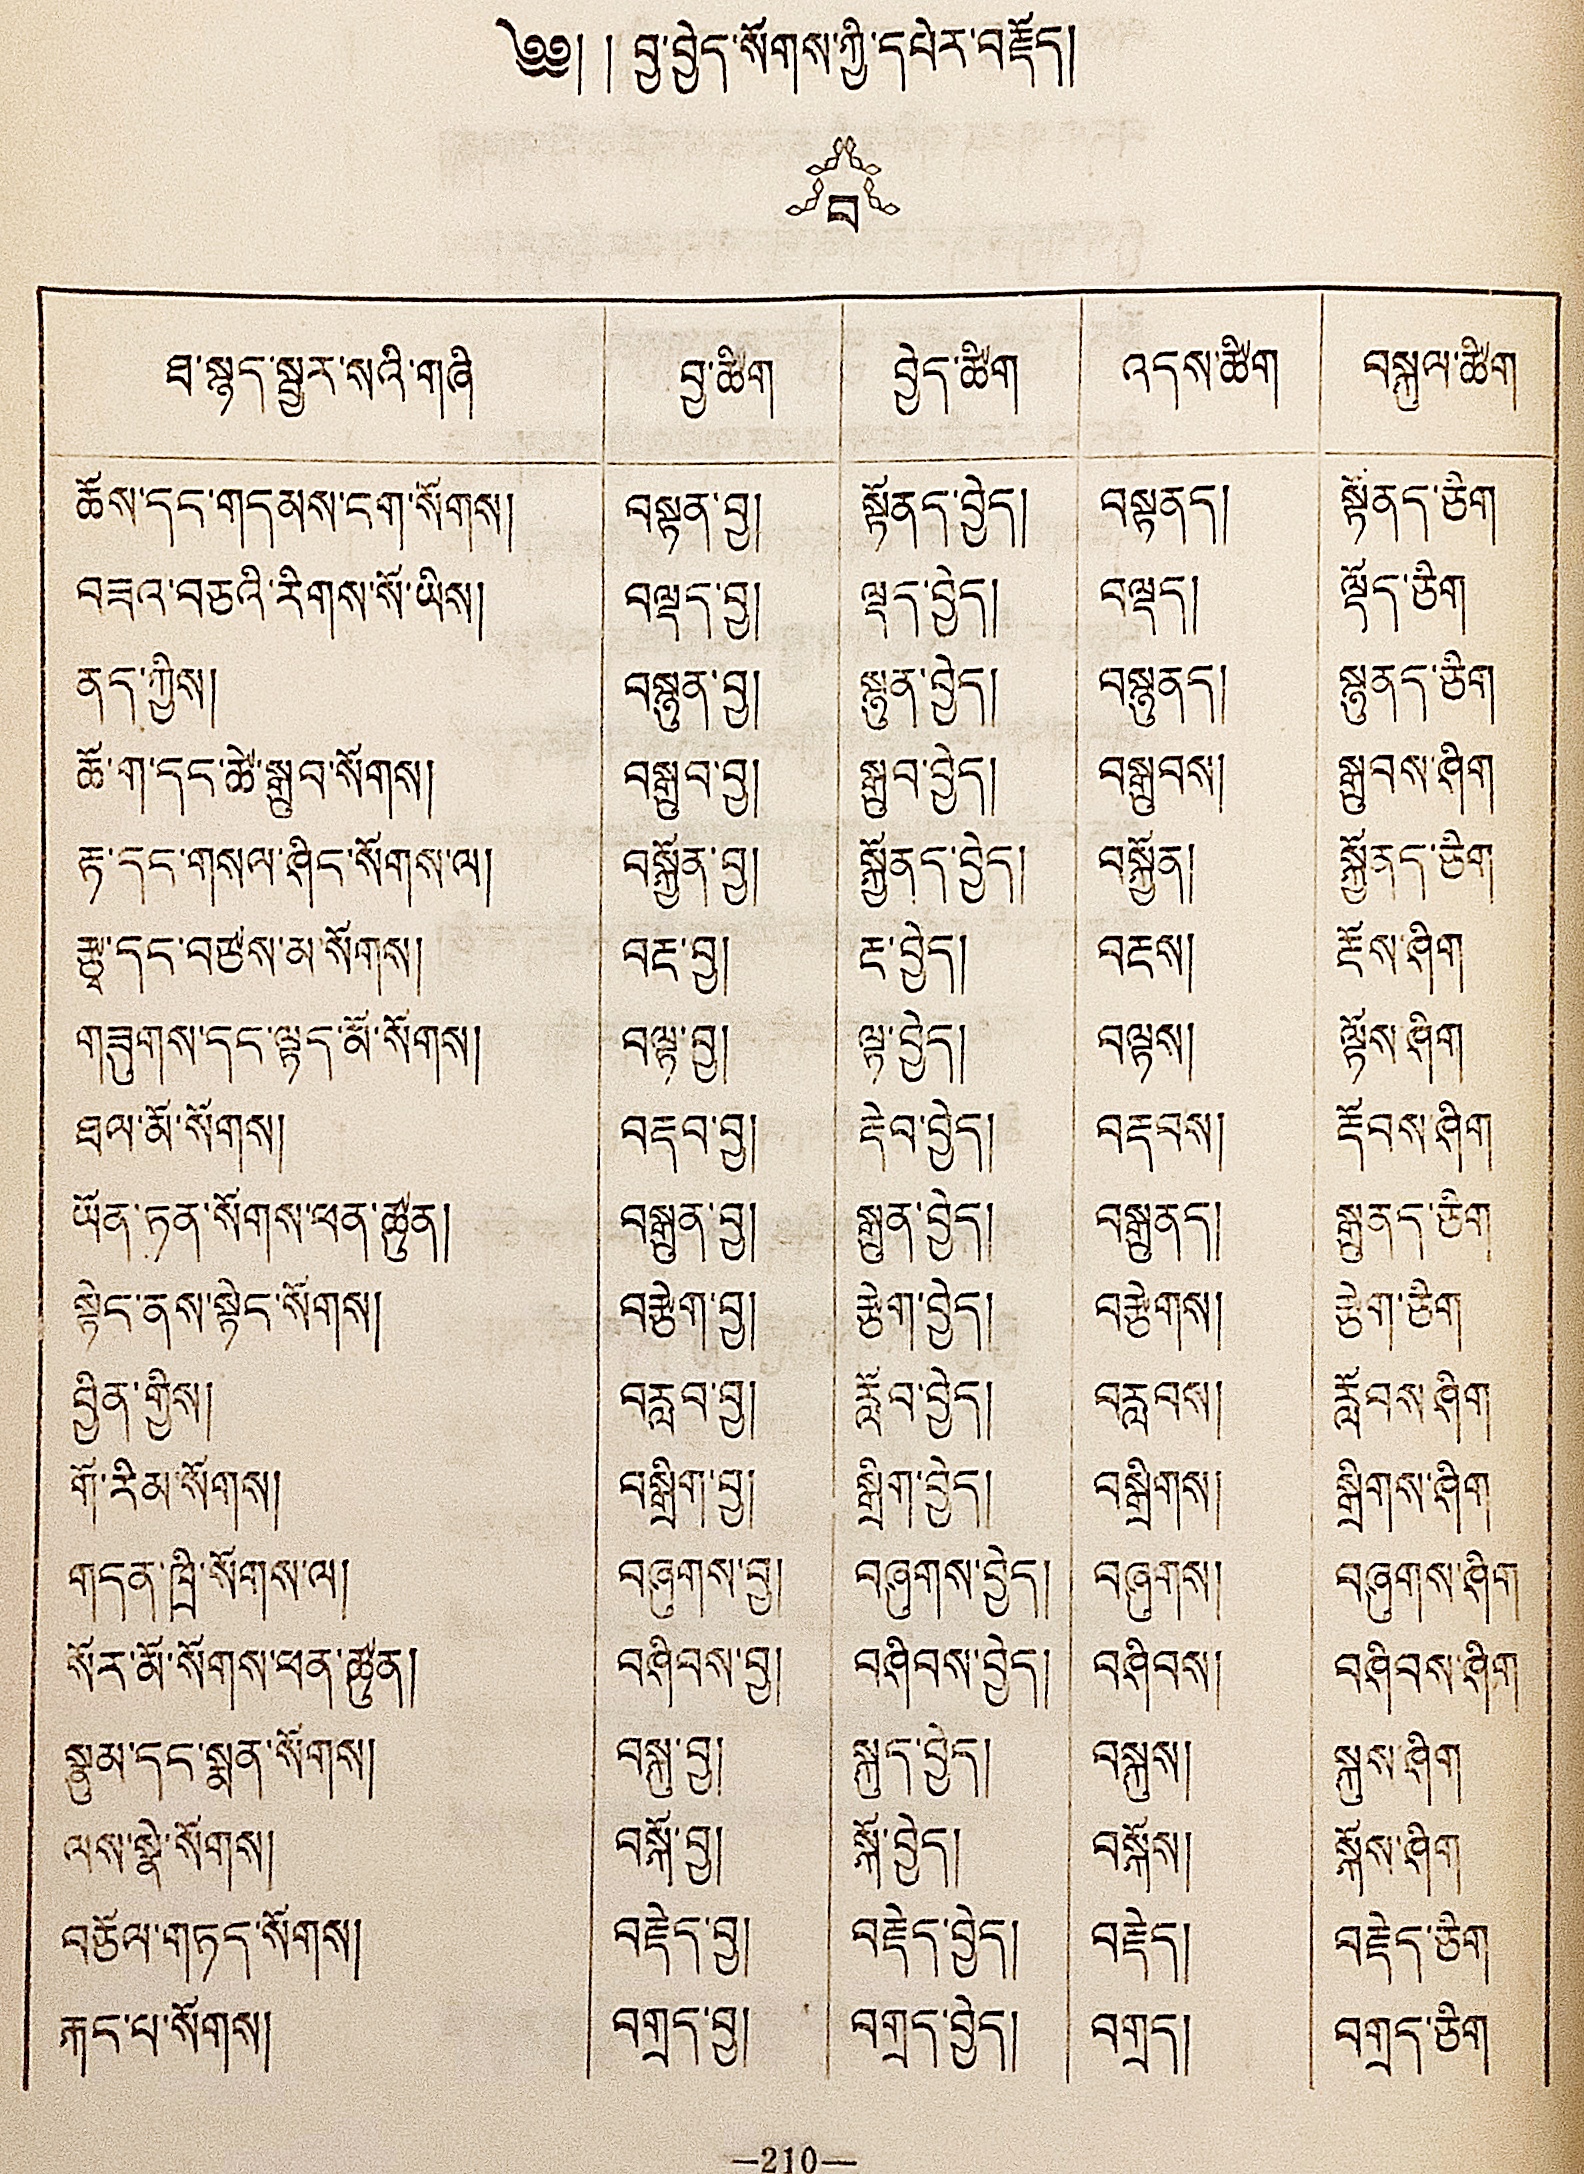 ༄༅། །བྱ་བྱེད་སོགས་ཀྱི་དཔེར་བརྗོད།
བ
ཐ་སྙད་སྦྱར་སའི་གཞི བྱ་ཚིག བྱེད་ཚིག འདས་ཚིག བསྐུལ་ཚིག
ཆོས་དང་གདམས་ངག་སོགས། བསྟན་བྱ། སྟོནད་བྱེད། བསྟནད། སྟོནད་ཅིག
བཟའ་བཅའི་རིགས་སོ་ཡིས། བལྡད་བྱ། ལྡད་བྱེད། བལྡད། ལྡོད་ཅིག
ནད་ཀྱིས། བསྙུན་བྱ། སྙུན་བྱེད། བསྙུནད། སྙུནད་ཅིག
ཆོ་ག་དང་ཚེ་སྒྲུབ་སོགས། བསྒྲུབ་བྱ། སྒྲུབ་བྱེད། བསྒྲུབས། སྒྲུབས་ཤིག
རྟ་དང་གསལ་ཤིང་སོགས་ལ། བསྐྱོན་བྱ། སྐྱོནད་བྱེད། བསྐྱོན། སྐྱོནད་ཅིག
རྩྭ་དང་བཙས་མ་སོགས། བརྔ་བྱ། རྔ་བྱེད། བརྔས། རྔོས་ཤིག
གཟུགས་དང་ལྟད་མོ་སོགས། བལྟ་བྱ། ལྟ་བྱེད། བལྟས། ལྟོས་ཤིག
ཐལ་མོ་སོགས། བརྡབ་བྱ། རྡེབ་བྱེད། བརྡབས། རྡོབས་ཤིག
ཡོན་ཏན་སོགས་ཕན་ཚུན། བསྒྲུན་བྱ། སྒྲུན་བྱེད། བསྒྲུནད། སྒྲུནད་ཅིག
སྟེང་ནས་སྟེང་སོགས། བརྩེག་བྱ། རྩེག་བྱེད། བརྩེགས། རྩེག་ཅིག
བྱིན་གྱིས། བརླབ་བྱ། རློབ་བྱེད། བརླབས། རློབས་ཤིག
གོ་རིམ་སོགས། བསྒྲིག་བྱ། སྒྲིག་བྱེད། བསྒྲིགས། སྒྲིགས་ཤིག
གདན་ཁྲི་སོགས་ལ། བཞུགས་བྱ། བཞུགས་བྱེད། བཞུགས། བཞུགས་ཤིག
སོར་མོ་སོགས་ཕན་ཚུན། བཤིབས་བྱ། བཤིབས་བྱེད། བཤིབས། བཤིབས་ཤིག
སྣུམ་དང་སྨན་སོགས། བསྐུ་བྱ། སྐུད་བྱེད། བསྐུས། སྐུས་ཤིག
ལས་སྣེ་སོགས། བསྐོ་བྱ། སྐོ་བྱེད། བསྐོས། སྐོས་ཤིག
བཅོལ་གཏད་སོགས། བརྗེད་བྱ། བརྗེད་བྱེད། བརྗེད། བརྗེད་ཅིག
རྐང་པ་སོགས། བགྲད་བྱ། བགྲད་བྱེད། བགྲད། བགྲད་ཅིག
—210—